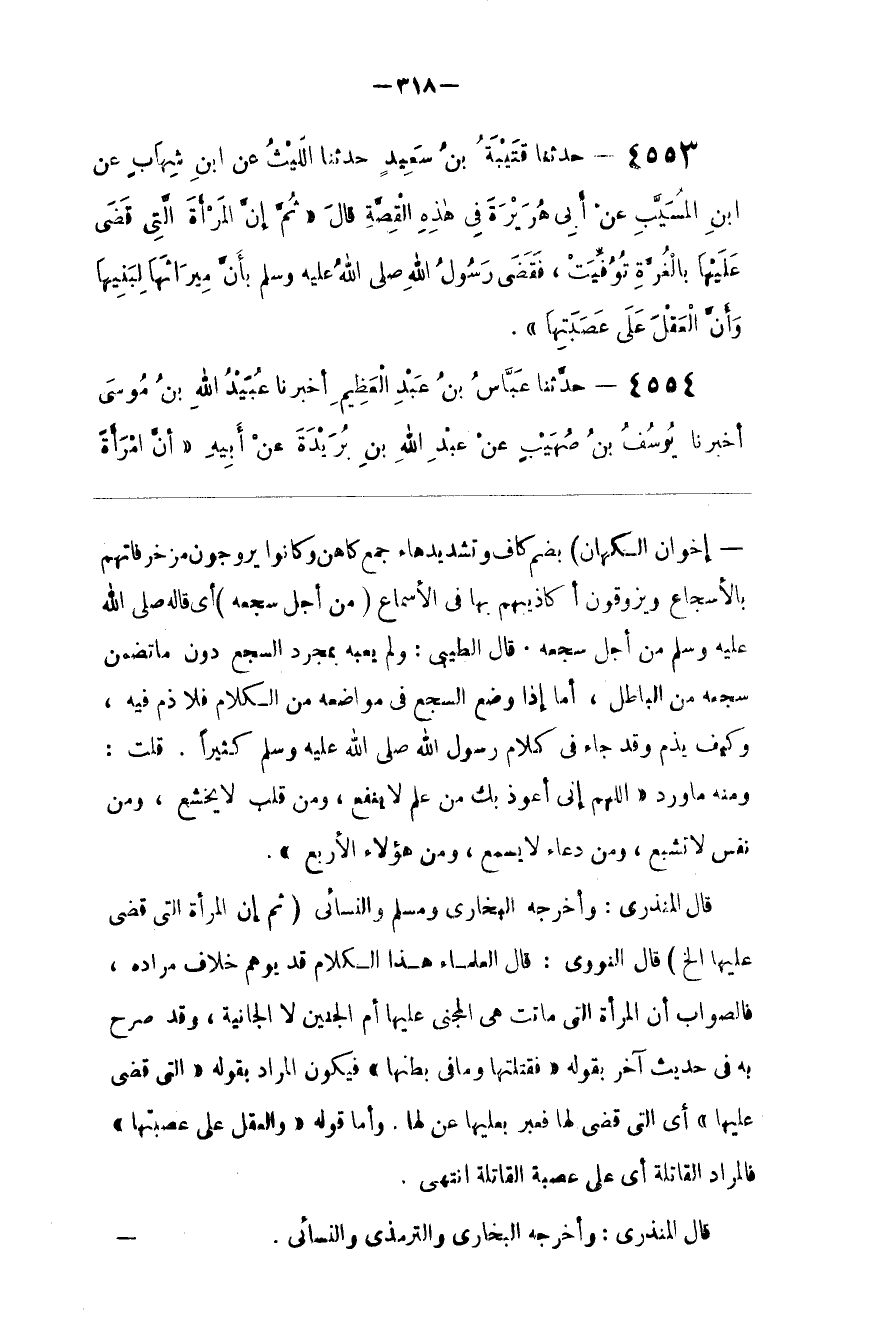 —٣١٨—
٤٥٥٣ — حدثنا قُتَيْبَةُ بنُ سَعِيدٍ حدثنا اللَّيْثُ عن ابنِ شِهَابٍ عن
ابنِ المُسَيَّبِ عنْ أَبِى هُرَيْرَةَ فِى هٰذِهِ الْقِصَّةِ قالَ « ثُمَّ إنَّ المَرْأَةَ الَّتِى قَضَى
عَلَيْهَا بالْغُرَّةِ تُوُفِّيَتْ ، فَقَضَى رَسُولُ اللهِ صلى اللهُ عليه وسلم بأَنَّ مِيرَاثَهَا لِبَنِيهَا
وَأَنَّ الْعَقْلَ عَلَى عَصَبَتِهَا » .
٤٥٥٤ — حدَّثنا عَبَّاسُ بنُ عَبْدِ الْعَظِيمِ أخبرنا عُبَيْدُ اللهِ بنُ مُوسَى
أخبرنا يُوسُفُ بنُ صُهَيْبٍ عنْ عبْدِ اللهِ بنِ بُرَيْدَةَ عنْ أَبِيهِ « أنَّ امْرَأَةً
— إخوان الكهان) بضم كاف وتشديد هاء جمع كاهن وكانوا يروجون مزخرفاتهم
بالأسجاع ويزوقون أكاذيبهم بها فى الأسماع ( من أجل سجعه ) أى قاله صلى الله
عليه وسلم من أجل سجعه . قال الطيبى : ولم يعبه بمجرد السجع دون ما تضمن
سجعه من الباطل ، أما إذا وضع السجع فى مواضعه من الكلام فلا ذم فيه ،
وكيف يذم وقد جاء فى كلام رسول الله صلى الله عليه وسلم كثيراً . قلت :
ومنه ماورد « اللهم إنى أعوذ بك من علم لاينفع ، ومن قلب لايخشع ، ومن
نفس لاتشبع ، ومن دعاء لايسمع ، ومن هؤلاء الأربع » .
قال المنذرى : وأخرجه البخارى ومسلم والنسائى ( ثم إن المرأة التى قضى
عليها الخ ) قال النووى : قال العلماء هذا الكلام قد يوهم خلاف مراده ،
فالصواب أن المرأة التى ماتت هى المجنى عليها أم الجنين لا الجانية ، وقد صرح
به فى حديث آخر بقوله « فقتلتها ومافى بطنها » فيكون المراد بقوله « التى قضى
عليها » أى التى قضى لها فعبر بعليها عن لها . وأما قوله « والعقل على عصبتها »
فالمراد القاتلة أى على عصبة القاتلة انتهى .
قال المنذرى : وأخرجه البخارى والترمذى والنسائى . —